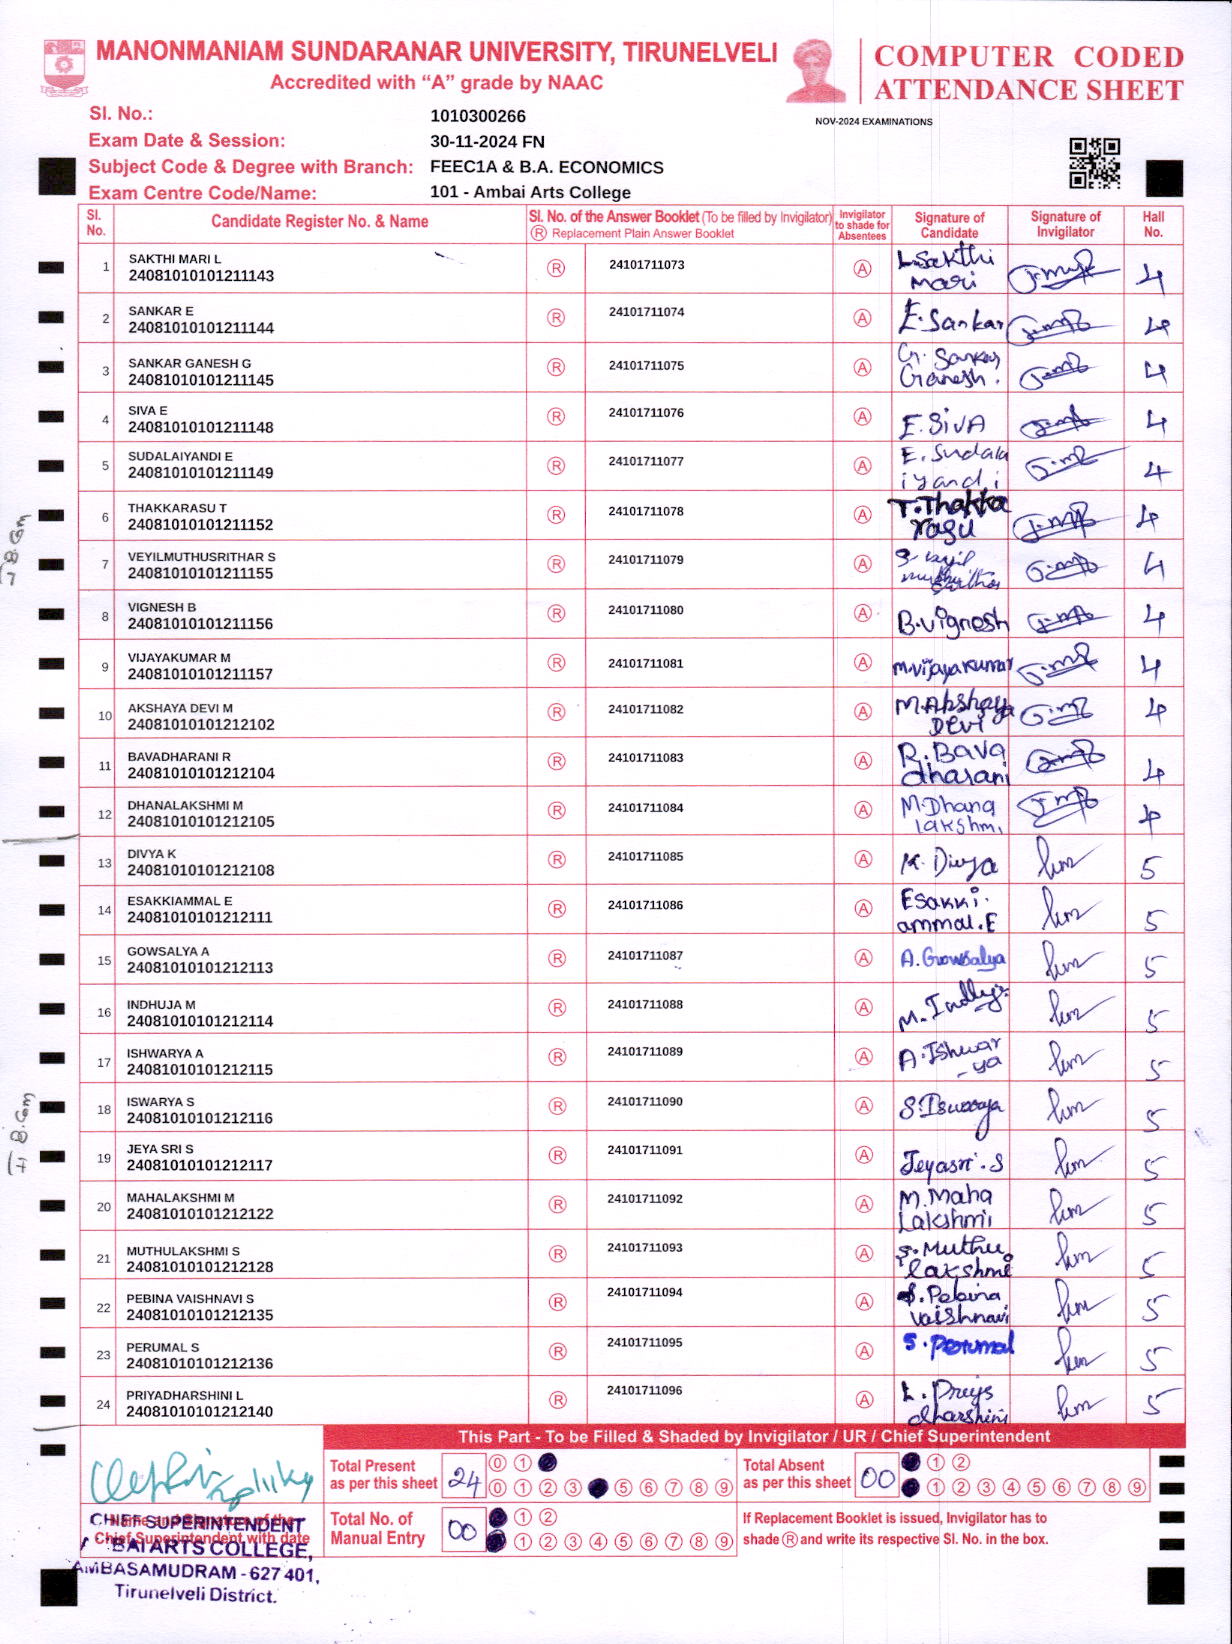 MANONMANIAM SUNDARANAR UNIVERSITY, TIRUNELVELI
Accredited with “A” grade by NAAC
COMPUTER CODED
ATTENDANCE SHEET
NOV-2024 EXAMINATIONS
Sl. No.: 1010300266
Exam Date & Session: 30-11-2024 FN
Subject Code & Degree with Branch: FEEC1A & B.A. ECONOMICS
Exam Centre Code/Name: 101 - Ambai Arts College
Sl. No. Candidate Register No. & Name Sl. No. of the Answer Booklet (To be filled by Invigilator) Ⓡ Replacement Plain Answer Booklet Invigilator to shade for Absentees Signature of Candidate Signature of Invigilator Hall No.
1 SAKTHI MARI L 24081010101211143 Ⓡ 24101711073 Ⓐ L.Sakthi Mari 4
2 SANKAR E 24081010101211144 Ⓡ 24101711074 Ⓐ E.Sankar 4
3 SANKAR GANESH G 24081010101211145 Ⓡ 24101711075 Ⓐ G. Sankar Ganesh. 4
4 SIVA E 24081010101211148 Ⓡ 24101711076 Ⓐ E.SiVA 4
5 SUDALAIYANDI E 24081010101211149 Ⓡ 24101711077 Ⓐ E. Sudala iyandi 4
6 THAKKARASU T 24081010101211152 Ⓡ 24101711078 Ⓐ T.Thakka rasu 4
7 VEYILMUTHUSRITHAR S 24081010101211155 Ⓡ 24101711079 Ⓐ 4
8 VIGNESH B 24081010101211156 Ⓡ 24101711080 Ⓐ B.vignesh 4
9 VIJAYAKUMAR M 24081010101211157 Ⓡ 24101711081 Ⓐ M.vijayakumar 4
10 AKSHAYA DEVI M 24081010101212102 Ⓡ 24101711082 Ⓐ M.Akshaya Devi 4
11 BAVADHARANI R 24081010101212104 Ⓡ 24101711083 Ⓐ R.Bava dharani 4
12 DHANALAKSHMI M 24081010101212105 Ⓡ 24101711084 Ⓐ M.Dhana lakshmi 4
13 DIVYA K 24081010101212108 Ⓡ 24101711085 Ⓐ K. Divya 5
14 ESAKKIAMMAL E 24081010101212111 Ⓡ 24101711086 Ⓐ Esakki ammal.E 5
15 GOWSALYA A 24081010101212113 Ⓡ 24101711087 Ⓐ A.Gowsalya 5
16 INDHUJA M 24081010101212114 Ⓡ 24101711088 Ⓐ 5
17 ISHWARYA A 24081010101212115 Ⓡ 24101711089 Ⓐ A.Ishwar -ya 5
18 ISWARYA S 24081010101212116 Ⓡ 24101711090 Ⓐ S.Iswarya 5
19 JEYA SRI S 24081010101212117 Ⓡ 24101711091 Ⓐ Jeyasri.S 5
20 MAHALAKSHMI M 24081010101212122 Ⓡ 24101711092 Ⓐ M.Maha Lakshmi 5
21 MUTHULAKSHMI S 24081010101212128 Ⓡ 24101711093 Ⓐ S.Muthu lakshmi 5
22 PEBINA VAISHNAVI S 24081010101212135 Ⓡ 24101711094 Ⓐ S.Pebina Vaishnavi 5
23 PERUMAL S 24081010101212136 Ⓡ 24101711095 Ⓐ S.Perumal 5
24 PRIYADHARSHINI L 24081010101212140 Ⓡ 24101711096 Ⓐ L.Priya dharshini 5
B.Com
B.Com
This Part - To be Filled & Shaded by Invigilator / UR / Chief Superintendent
Total Present as per this sheet 24 0 1
0 1 2 3 5 6 7 8 9
Total Absent as per this sheet 00 1 2
1 2 3 4 5 6 7 8 9
Total No. of Manual Entry 00 1 2
1 2 3 4 5 6 7 8 9
If Replacement Booklet is issued, Invigilator has to
shade Ⓡ and write its respective Sl. No. in the box.
Name and Signature of the
Chief Superintendent with date
CHIEF SUPERINTENDENT
BAI ARTS COLLEGE,
AMBASAMUDRAM - 627 401,
Tirunelveli District.